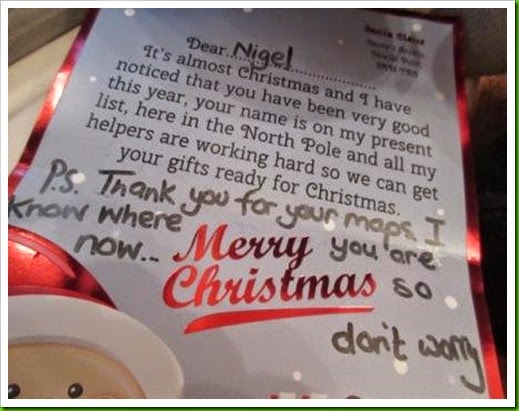 Santa Claus
North Pole
Dear Nigel
It's almost Christmas and I have
noticed that you have been very good
this year, your name is on my present
list, here in the North Pole and all my
helpers are working hard so we can get
your gifts ready for Christmas.
P.S. Thank you for your maps I
know where you are
now... so
don't worry
Merry
Christmas